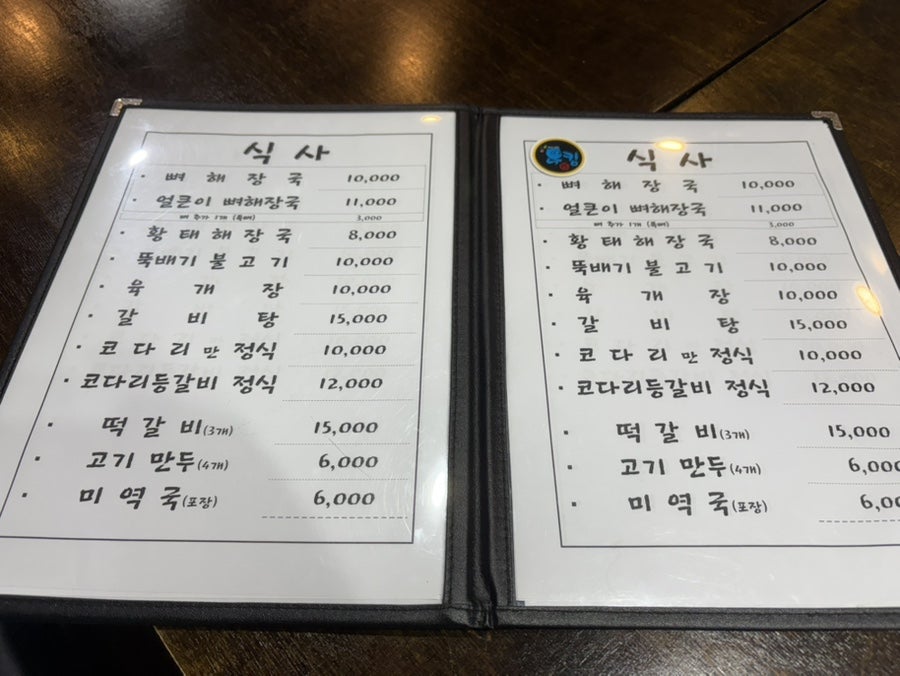 식 사
· 뼈 해 장 국 10,000
· 얼큰이 뼈해장국 11,000
뼈 추가 1개 (목뼈) 3,000
· 황 태 해 장 국 8,000
· 뚝배기 불 고 기 10,000
· 육 개 장 10,000
· 갈 비 탕 15,000
· 코 다 리 만 정식 10,000
· 코다리등갈비 정식 12,000
· 떡 갈 비 (3개) 15,000
· 고기 만두 (4개) 6,000
· 미 역 국 (포장) 6,000
식 사
· 뼈 해 장 국 10,000
· 얼큰이 뼈해장국 11,000
뼈 추가 1개 (목뼈) 3,000
· 황 태 해 장 국 8,000
· 뚝배기 불 고 기 10,000
· 육 개 장 10,000
· 갈 비 탕 15,000
· 코 다 리 만 정식 10,000
· 코다리등갈비 정식 12,000
· 떡 갈 비 (3개) 15,000
· 고기 만두 (4개) 6,00
· 미 역 국 (포장) 6,0